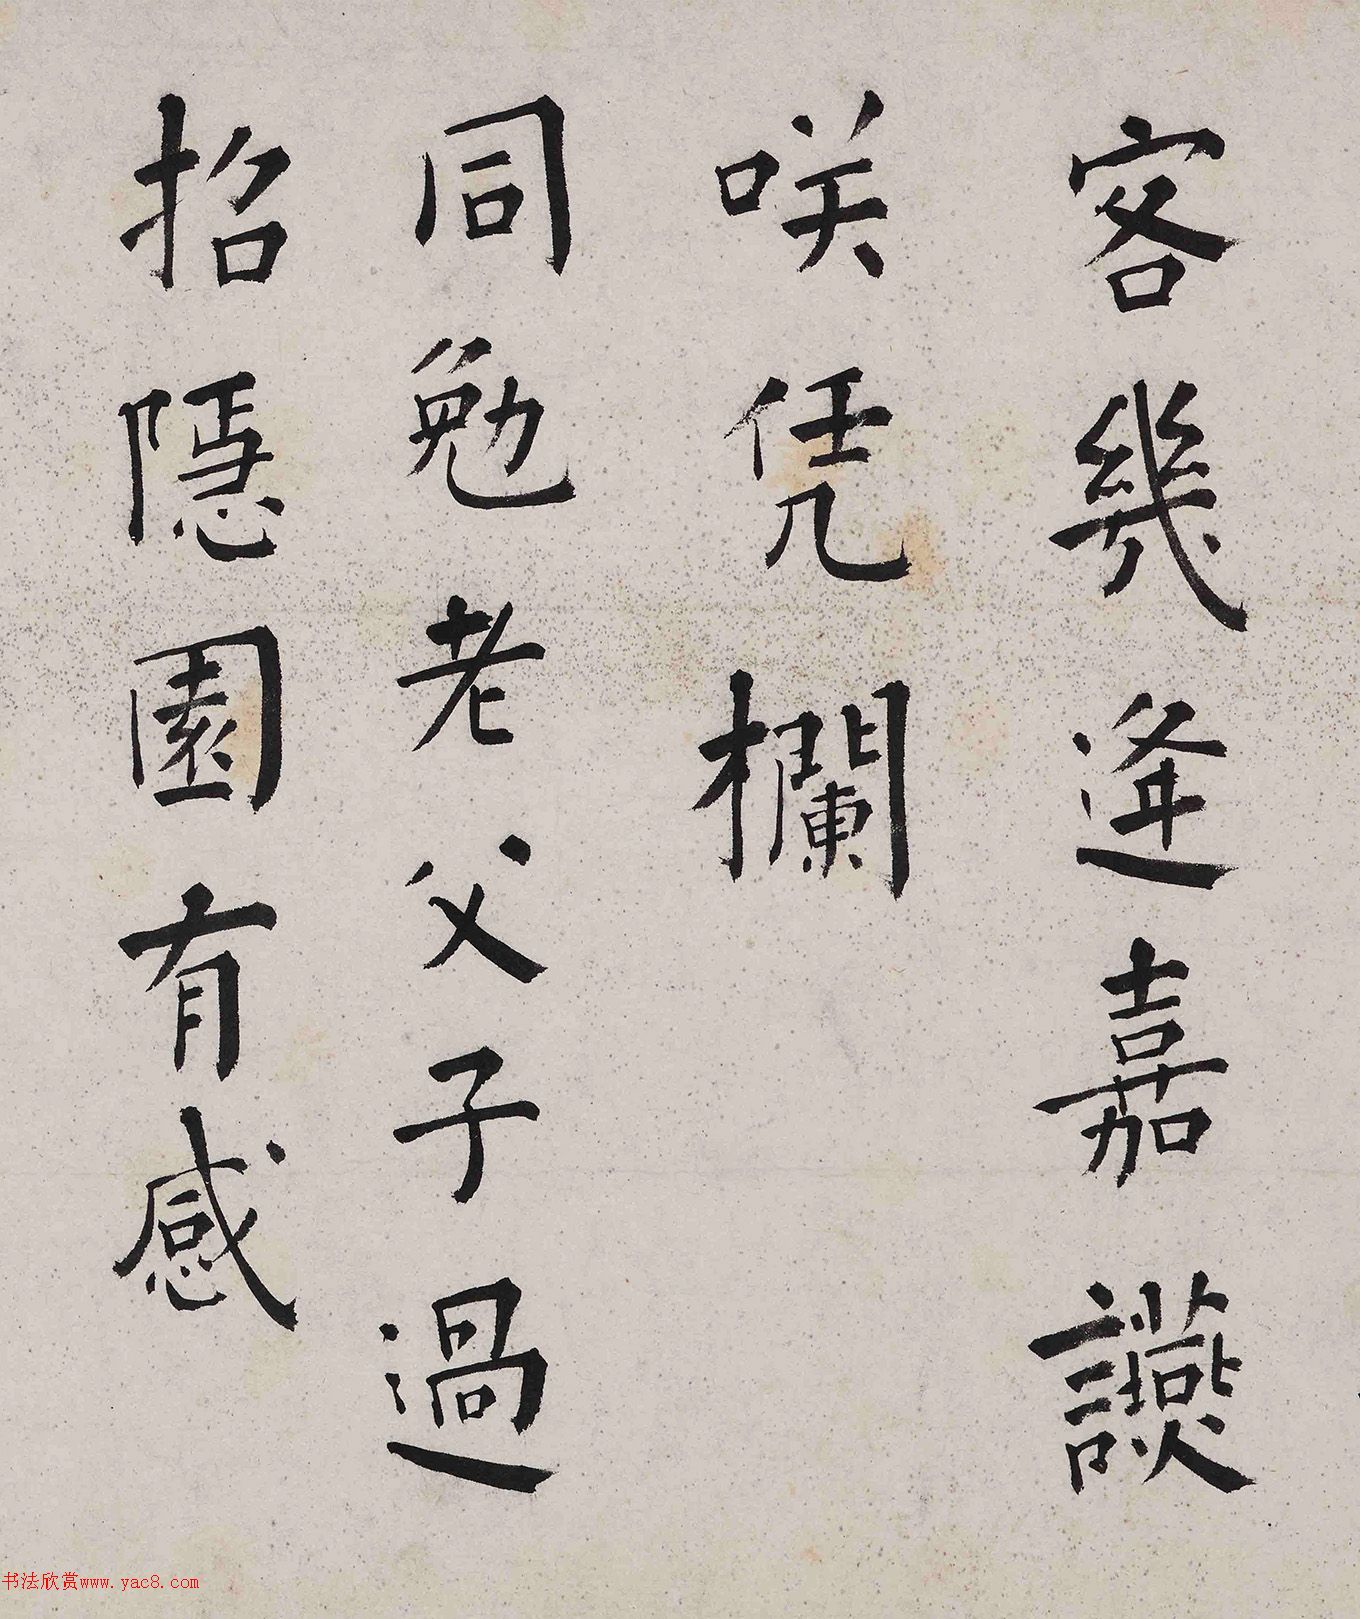 客幾逢嘉讌
咲凭欄
同勉老父子過
招隱園有感
书法欣赏www.yac8.com